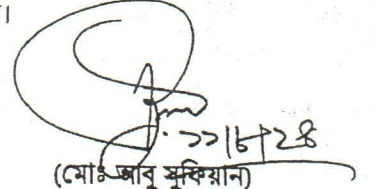 ।
১১।৮।২৪
(মোঃ আবু সুফিয়ান)